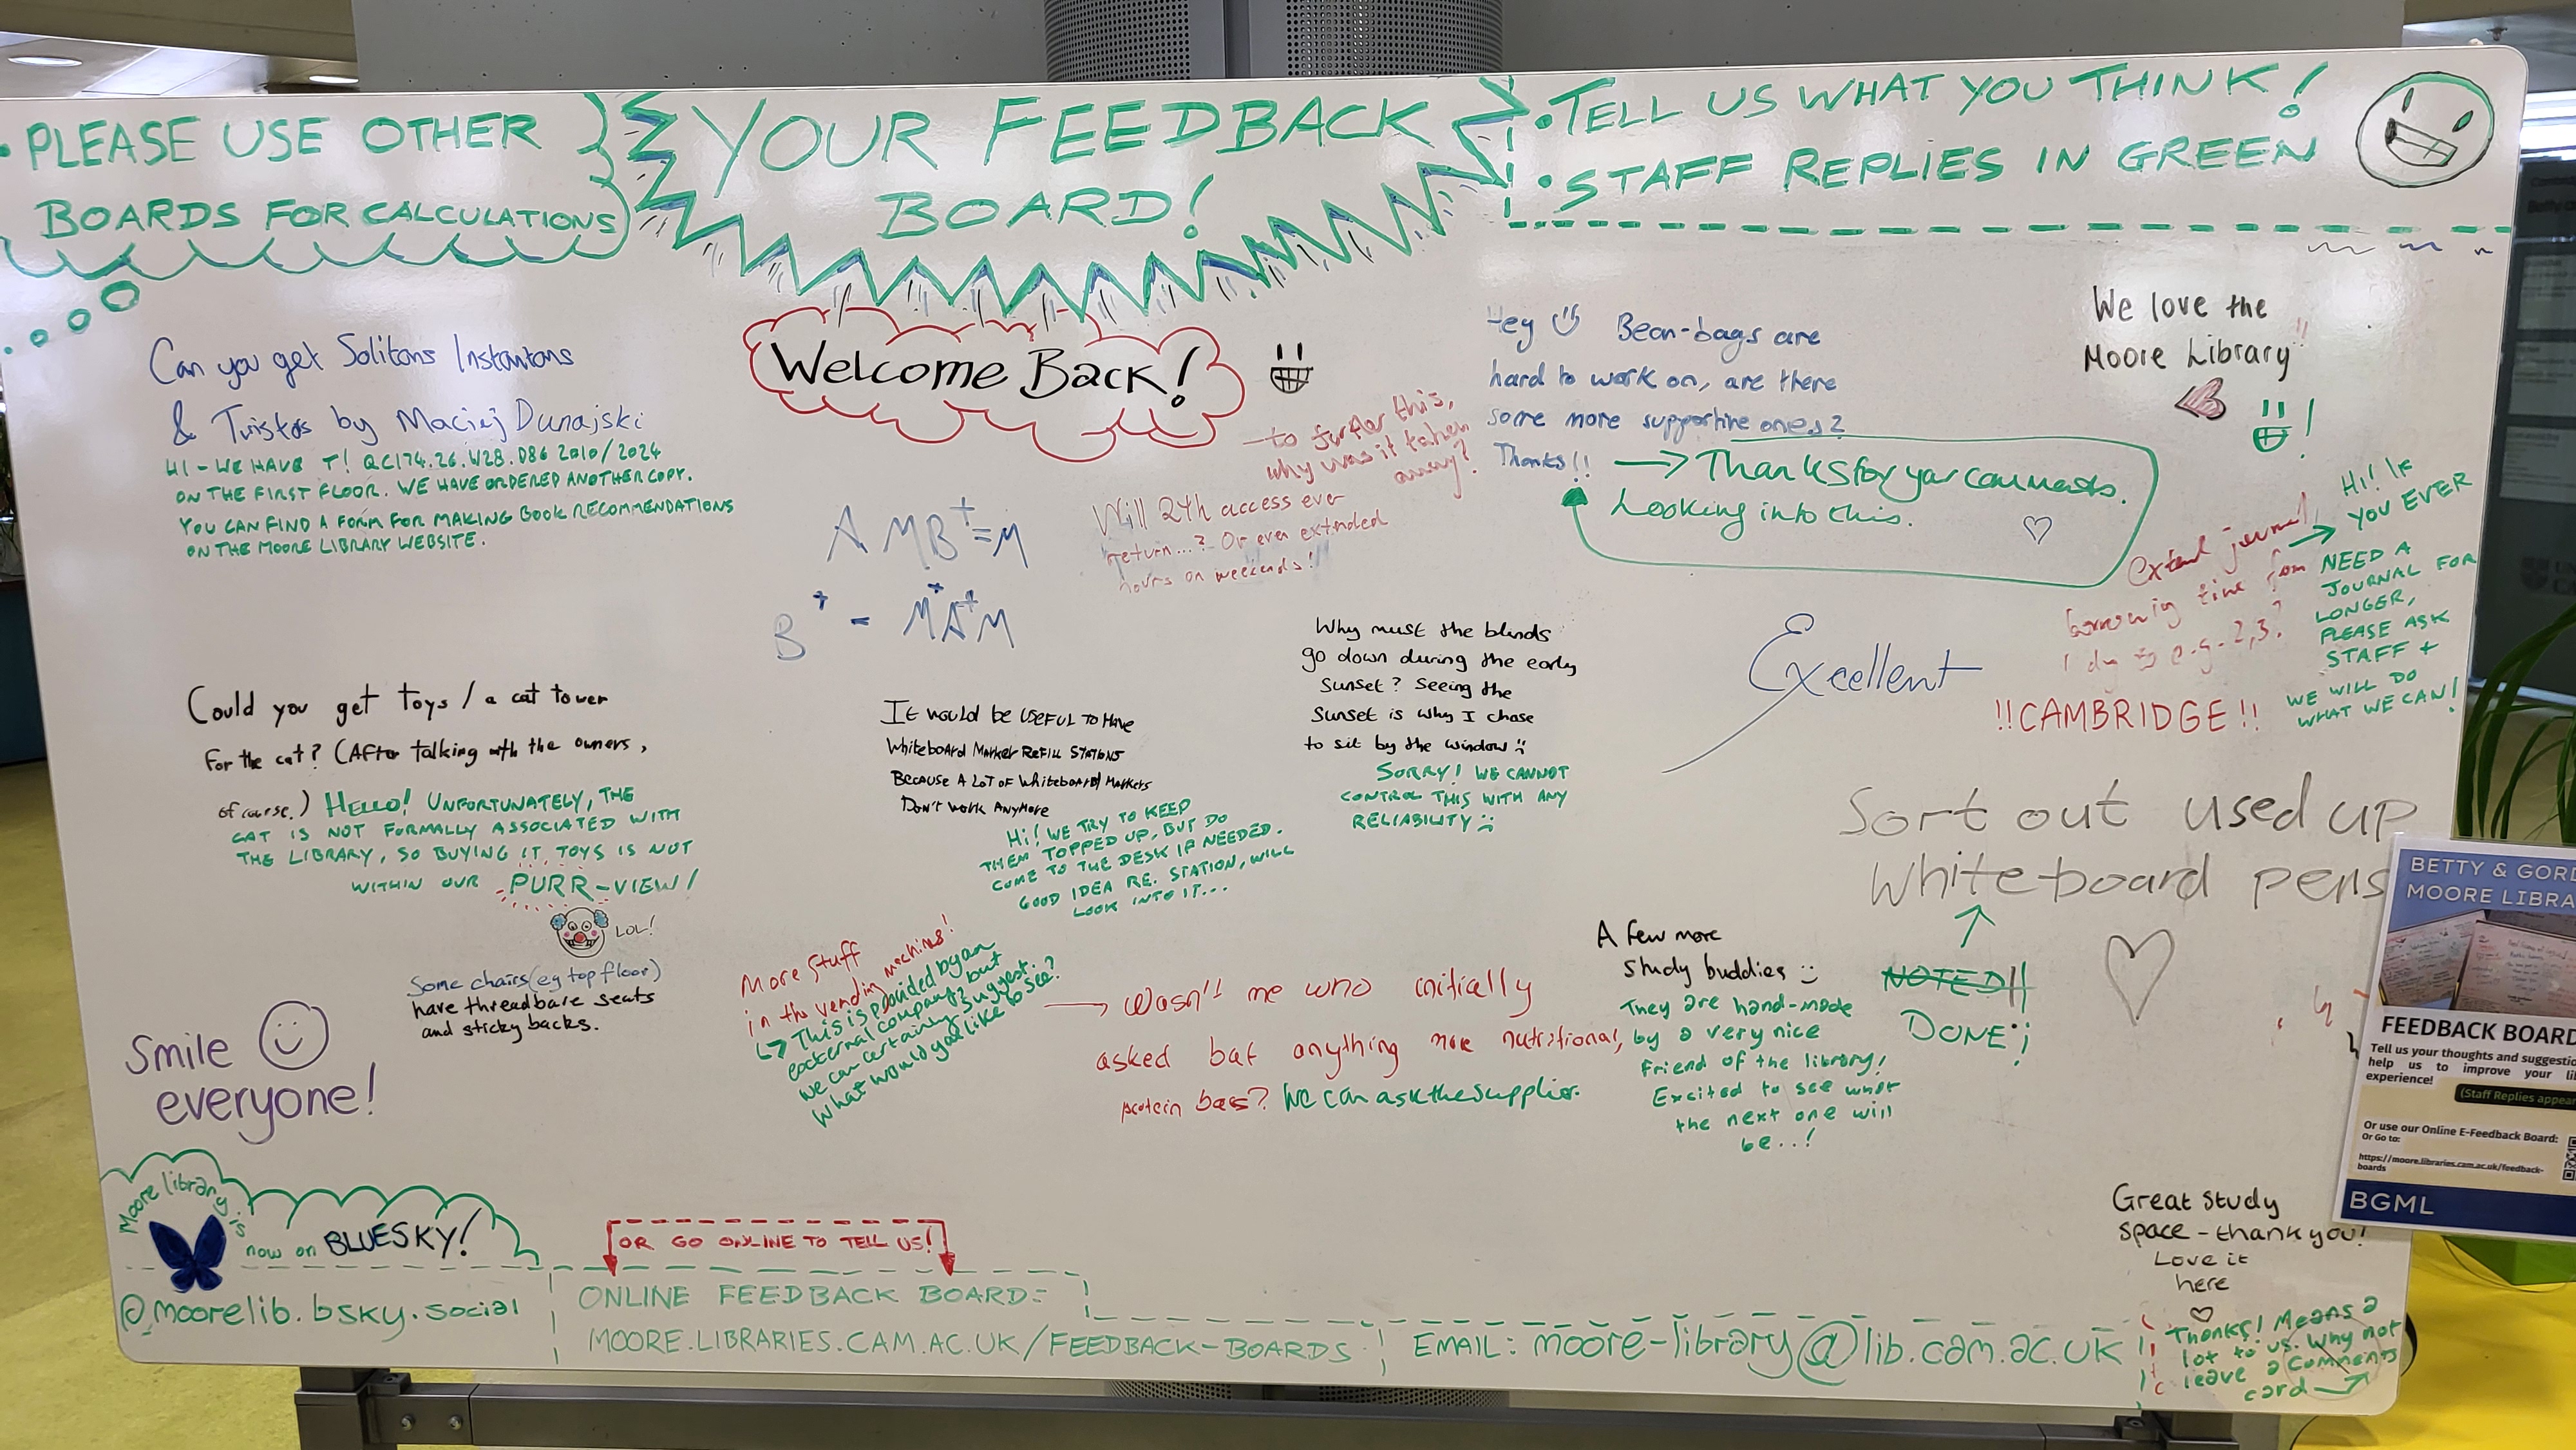 • PLEASE USE OTHER
BOARDS FOR CALCULATIONS
YOUR FEEDBACK
BOARD!
• TELL US WHAT YOU THINK!
• STAFF REPLIES IN GREEN
Can you get Solitons Instantons
& Twistors by Maciej Dunajski
HI - WE HAVE IT! QC174.26.W28.D86 2010/2024
ON THE FIRST FLOOR. WE HAVE ORDERED ANOTHER COPY.
YOU CAN FIND A FORM FOR MAKING BOOK RECOMMENDATIONS
ON THE MOORE LIBRARY WEBSITE.
Welcome Back!
- to further this,
why was it taken
away?
Will 24h access ever
return...? Or even extended
hours on weekends!
A M B⁺ = M
B⁺ = M⁺A⁺M
Hey Bean-bags are
hard to work on, are there
some more supportive ones?
Thanks!!
→ Thanks for your comments.
Looking into this.
We love the
Moore Library!!
!
extend journal
borrowing time from
1 day to e.g. 2,3?
Hi! IF
YOU EVER
NEED A
JOURNAL FOR
LONGER,
PLEASE ASK
STAFF +
WE WILL DO
WHAT WE CAN!
!!CAMBRIDGE!!
Excellent
Could you get toys / a cat tower
for the cat? (After talking with the owners,
of course.)
HELLO! UNFORTUNATELY, THE
CAT IS NOT FORMALLY ASSOCIATED WITH
THE LIBRARY, SO BUYING IT TOYS IS NOT
WITHIN OUR PURR-VIEW!
LOL!
It would be useful to have
Whiteboard Marker Refill Stations
Because a lot of whiteboard markers
Don't work anymore
HI! WE TRY TO KEEP
THEM TOPPED UP, BUT DO
COME TO THE DESK IF NEEDED.
GOOD IDEA RE. STATION, WILL
LOOK INTO IT...
Why must the blinds
go down during the early
sunset? Seeing the
sunset is why I chose
to sit by the window :(
SORRY! WE CANNOT
CONTROL THIS WITH ANY
RELIABILITY :(
Sort out used up
whiteboard pens
NOTED!!
DONE!
Some chairs (eg top floor)
have threadbare seats
and sticky backs.
Smile
everyone!
More stuff
in the vending machines!
↳ This is provided by an
external company, but
we can certainly suggest.
What would you like to see?
→ Wasn't me who initially
asked but anything more nutritional,
protein bars? We can ask the supplier.
A few more
study buddies :)
They are hand-made
by a very nice
friend of the library!
Excited to see what
the next one will
be...!
Great study
space - thank you!
Love it
here
Thanks! Means a
lot to us. Why not
leave a comments
card →
Moore library is
now on BLUESKY!
@moorelib.bsky.social
OR GO ONLINE TO TELL US!
ONLINE FEEDBACK BOARD:
MOORE.LIBRARIES.CAM.AC.UK/FEEDBACK-BOARDS
EMAIL: moore-library@lib.cam.ac.uk
BETTY & GORD
MOORE LIBRA
FEEDBACK BOARD
Tell us your thoughts and suggestio
help us to improve your li
experience!
(Staff Replies appear
Or use our Online E-Feedback Board:
Or Go to:
https://moore.libraries.cam.ac.uk/feedback-
boards
BGML